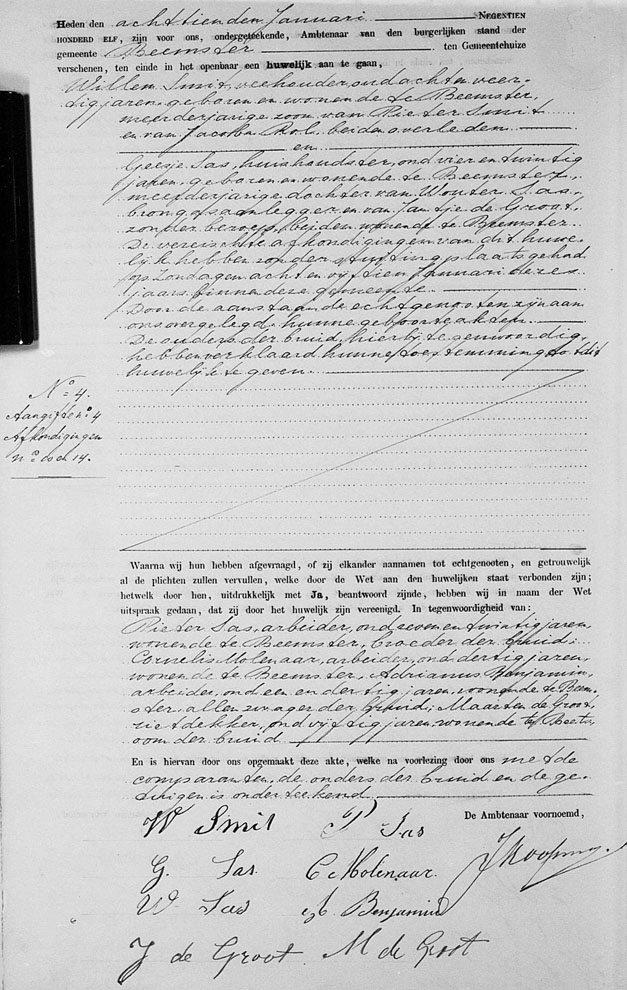 Heden den achttienden Januari NEGENTIEN
HONDERD ELF, zijn voor ons, ondergeteekende, Ambtenaar van den burgerlijken stand der
gemeente Beemster ten Gemeentehuize
verschenen, ten einde in het openbaar een huwelijk aan te gaan,
Willem Smit, veehouder, oud acht en veer-
tig jaren, geboren en wonende te Beemster,
meerderjarige zoon van Pieter Smit
en van Jacoba Rol, beiden overleden
en
Geesje Sas, huishoudster, oud vier en twintig
jaren, geboren en wonende te Beemster,
meerderjarige dochter van Wouter Sas,
aanlegger en van Jantje de Groot,
zonder beroep, beiden wonende te Beemster.
De vereischte afkondigingen van dit huwe-
lijk hebben zonder stuiting plaats gehad
op Zondagen acht en vijftien Januari dezes
jaars binnen deze gemeente
Door de aanstaande echtgenooten zijn aan
ons overgelegd: hunne geboorteakten.
De ouders der bruid, hierbij tegenwoordig,
hebben verklaard hunne toestemming tot dit
huwelijk te geven.
No. 4.
Aangifte no. 4
Afkondigingen
no. en 14.
Waarna wij hun hebben afgevraagd, of zij elkander aannamen tot echtgenooten, en getrouwelijk
al de plichten zullen vervullen, welke door de Wet aan den huwelijken staat verbonden zijn;
hetwelk door hen, uitdrukkelijk met Ja, beantwoord zijnde, hebben wij in naam der Wet
uitspraak gedaan, dat zij door het huwelijk zijn vereenigd. In tegenwoordigheid van:
Pieter Sas, arbeider, oud zeven en twintig jaren,
wonende te Beemster, broeder der bruid;
Cornelis Molenaar, arbeider, oud dertig jaren,
wonende te Beemster, Adrianus Benjamin,
arbeider, oud een en dertig jaren, wonende te Beem-
ster, allen zwager der bruid; Maarten de Groot,
rietdekker, oud vijftig jaren, wonende te Beets,
oom der bruid
En is hiervan door ons opgemaakt deze akte, welke na voorlezing door ons met de
comparanten, de ouders der bruid en de ge-
tuigen is onderteekend.
De Ambtenaar voornoemd,
W Smit P Sas
G. Sas. C Molenaar.
W Sas A. Benjamin
J de Groot. M de Groot